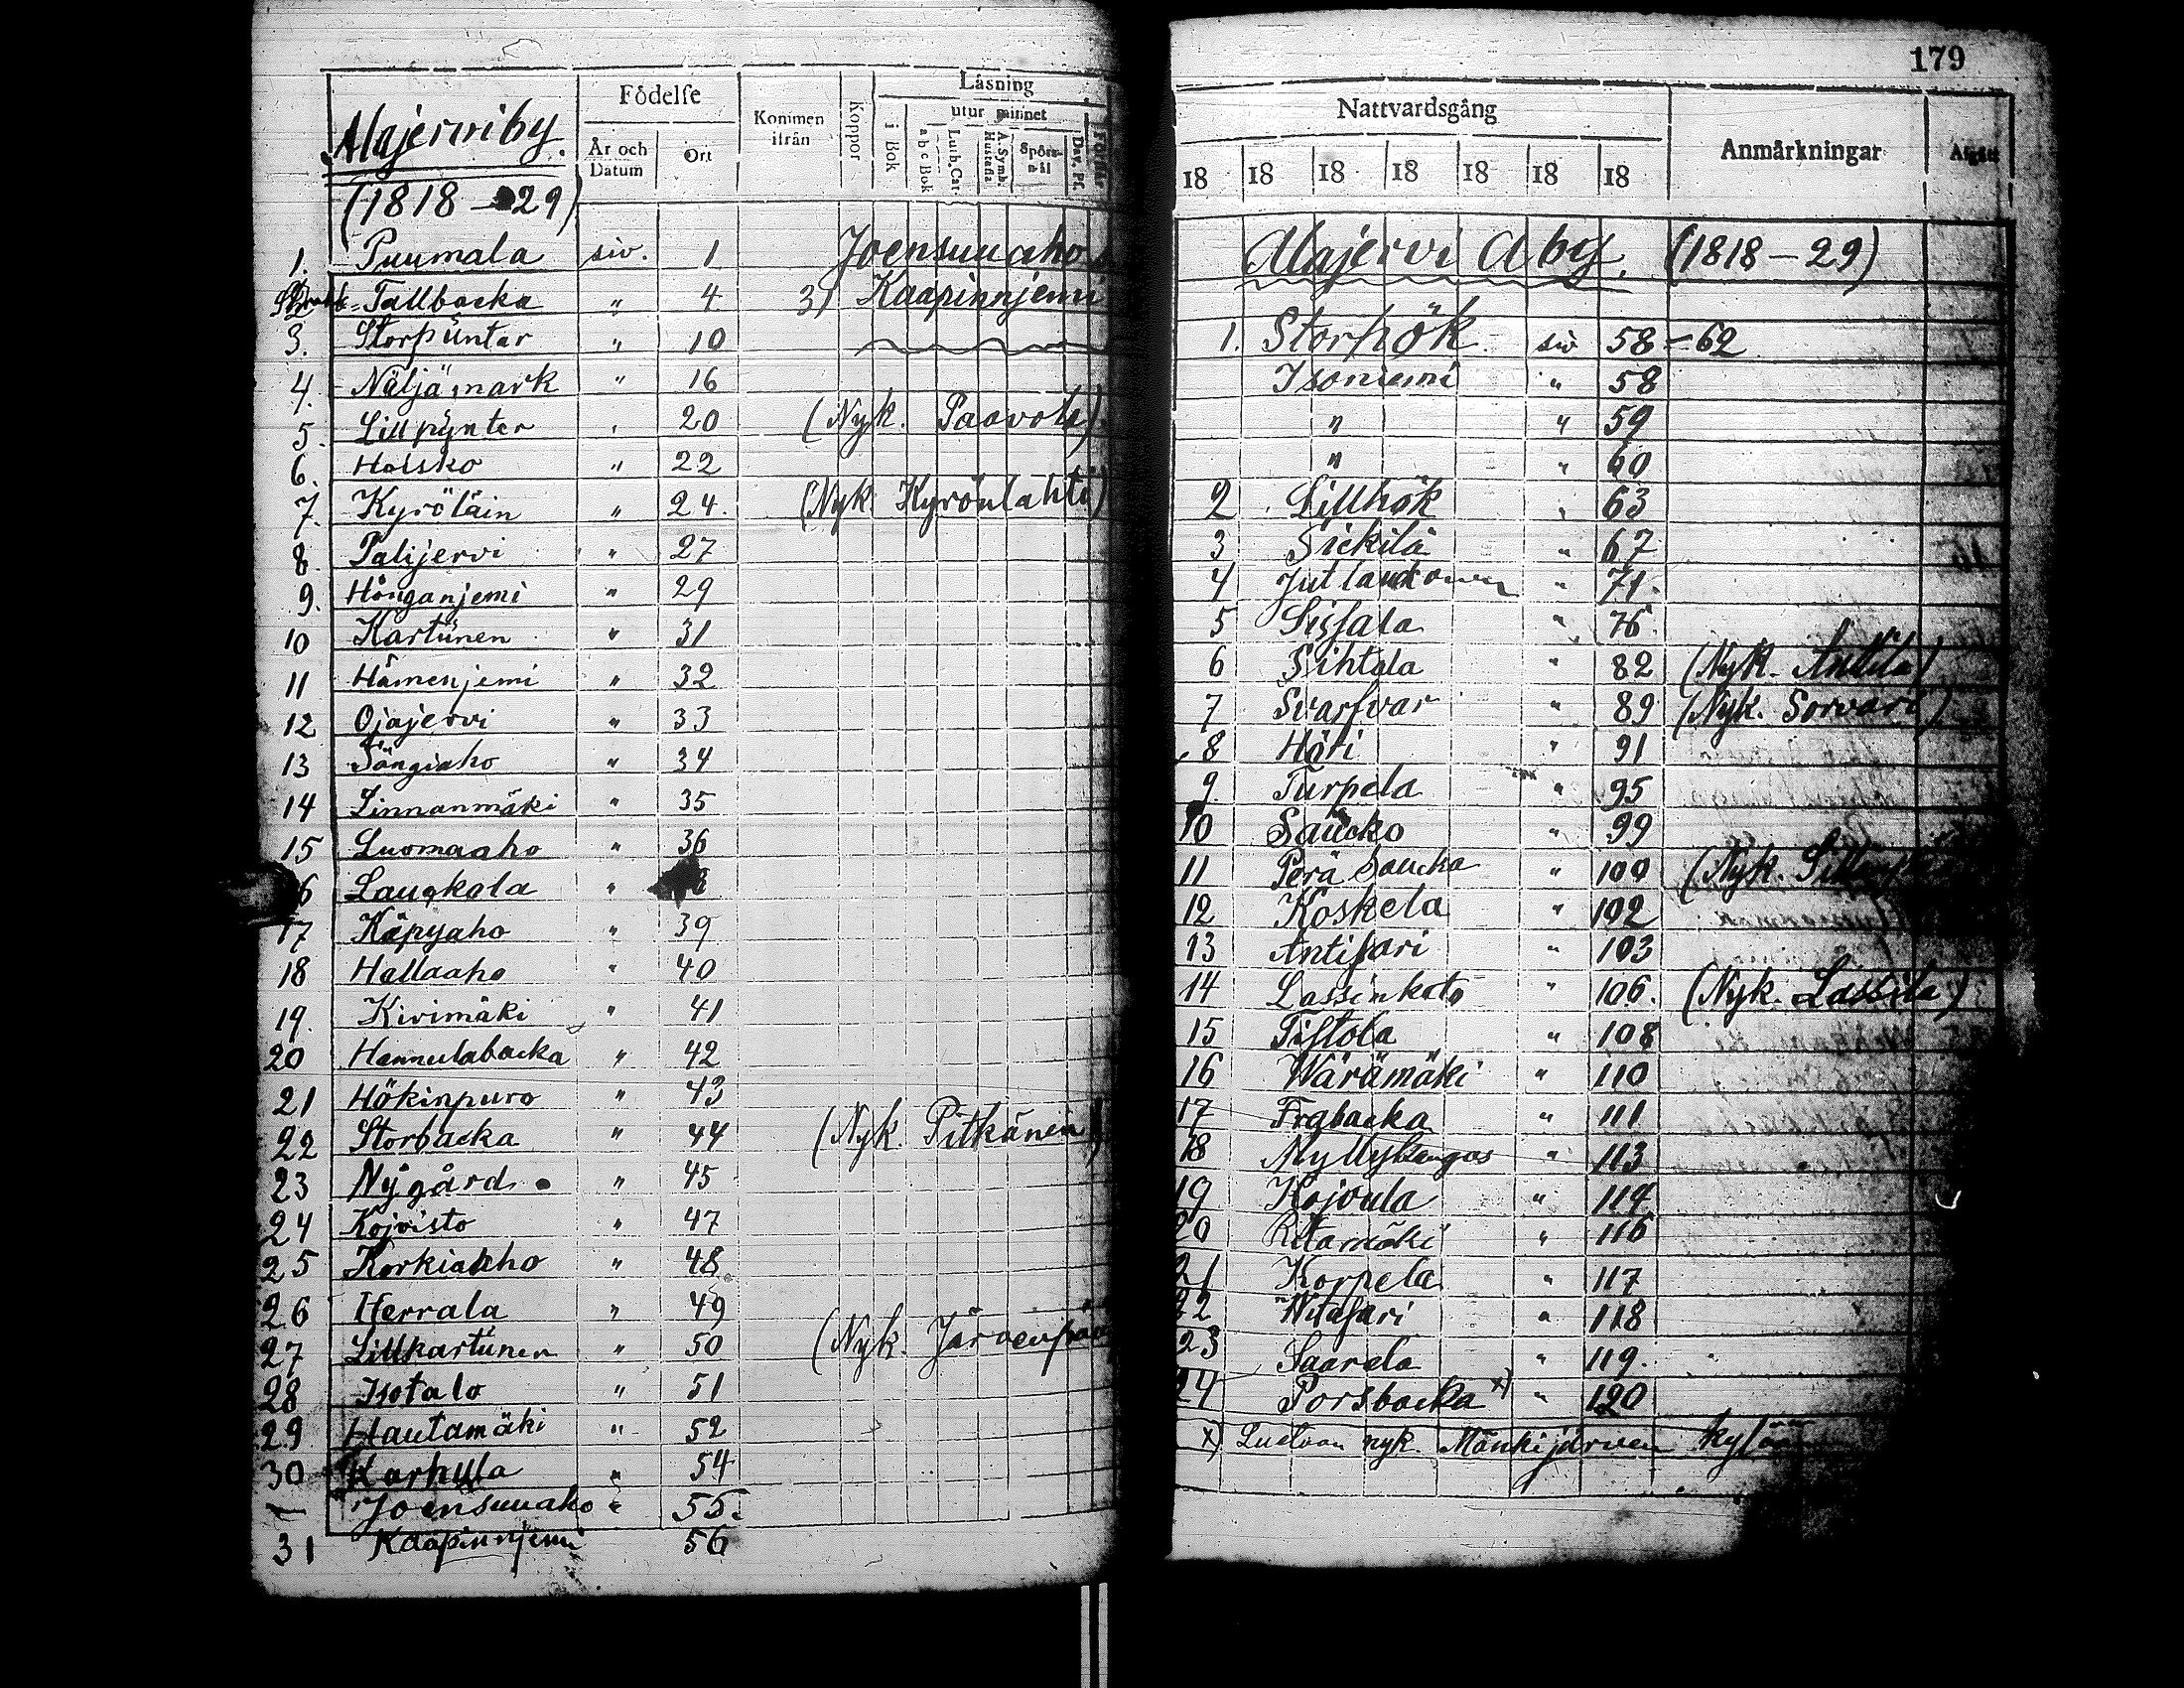 179
Födelse
År och Datum
Ort
Kommen ifrån
Koppor
Läsning
utur minnet
i Bok
a b c Bok
Luth. Cat.
A. Symb. Hustafla
Spörsmål
Dav. Ps.
Alajerwi by.
(1818-29)
1. Puumala siv. 1 Joensuuaho
2. Tallbacka " 4 31 Kaapinnjemi
3. Storpüntar " 10
4. Näljämark " 16
5. Lillpynter " 20 (Nyk. Paavola)
6. Holsko " 22
7. Kyröläin " 24. (Nyk. Kyrönlahti)
8. Palijervi " 27
9. Honganjemi " 29
10 Kartünen " 31
11 Hämenjemi " 32
12 Ojajervi " 33
13 Sängiaho " 34
14 Linnanmäki " 35
15 Luomaaho " 36
16 Laugkala "
17 Käpyaho " 39
18 Hallaaho " 40
19. Kivimäki " 41
20 Hannulabacka " 42
21 Hökinpuro " 43
22 Storbacka " 44 (Nyk. Pitkänen)
23 Nygård " 45
24 Kojvisto " 47
25 Korkiakho " 48
26 Herrala " 49
27 Lillkartünen " 50 (Nyk. Järvenpää
28 Isotalo " 51
29 Hautamäki " 52
30 Karhula " 54
— Joensuuaho " 55.
31 Kaapinnjemi 56
Nattvardsgång
Anmärkningar
18 18 18 18 18 18 18
Alajervi Aby. (1818-29)
1. Storhök siv 58-62
Isoniemi " 58
" " 59
" " 60
2 Lillhök " 63
3 Sickilä " 67
4 " 71.
5 Sissala " 76
6 Sihtola " 82 (Nyk. Anttila)
7 Svarfvar " 89 (Nyk. Sorvari)
8 Häti " 91
9 Turpela " 95
10 Saucko " 99
11 Perä Saucko " 100 (Nyk.
12 Koskela " 102
13 Antisari " 103
14 Lassinkoto " 106. (Nyk. Lassila)
15 Tistola " 108
16 Wärämäki " 110
17 Frabacka " 111
18 Myllykangas " 113
19 Kojoula " 114
20 Ritamäki " 116
21 Korpela " 117
22 Witasari " 118
23 Saarela " 119.
24 Porsbacka x) " 120
x) Luetaan nyk. Mänkijärven kylään